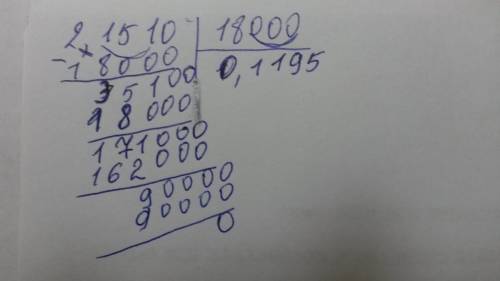 21510 18000
-18000 0,1195
35100
18000
171000
162000
90000
90000
0